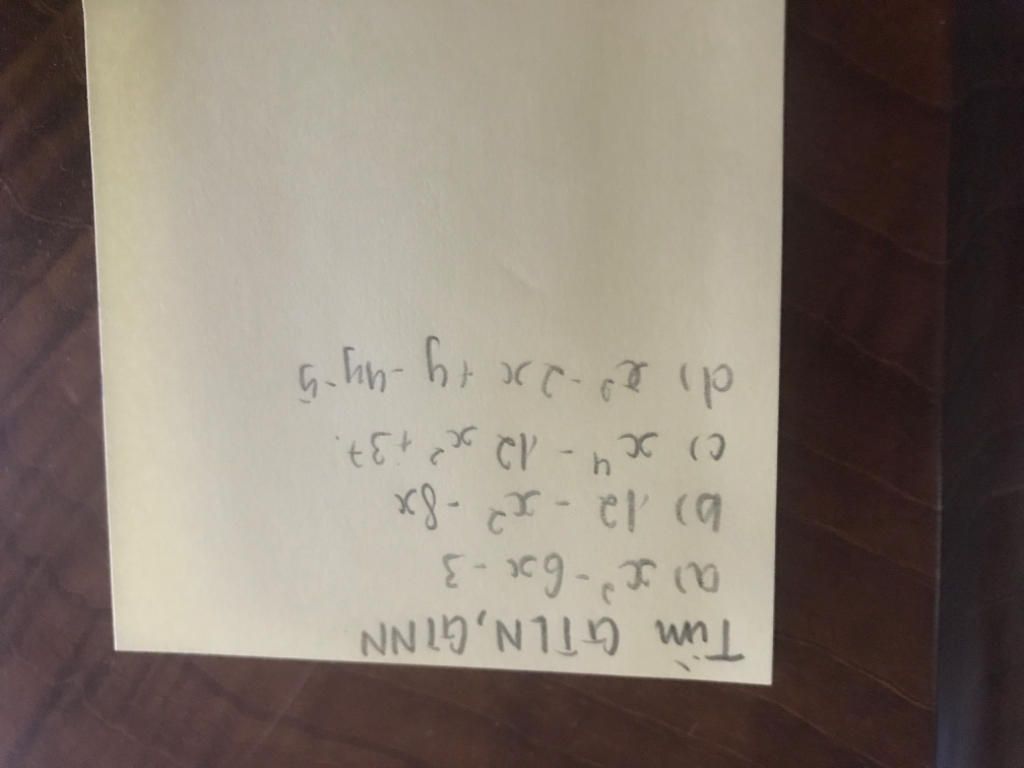 Tìm GTLN, GTNN
a) x² - 6x - 3
b) 12 - x² - 8x
c) x⁴ - 12x² + 37.
d) x² - 2x + y - 4y - 5